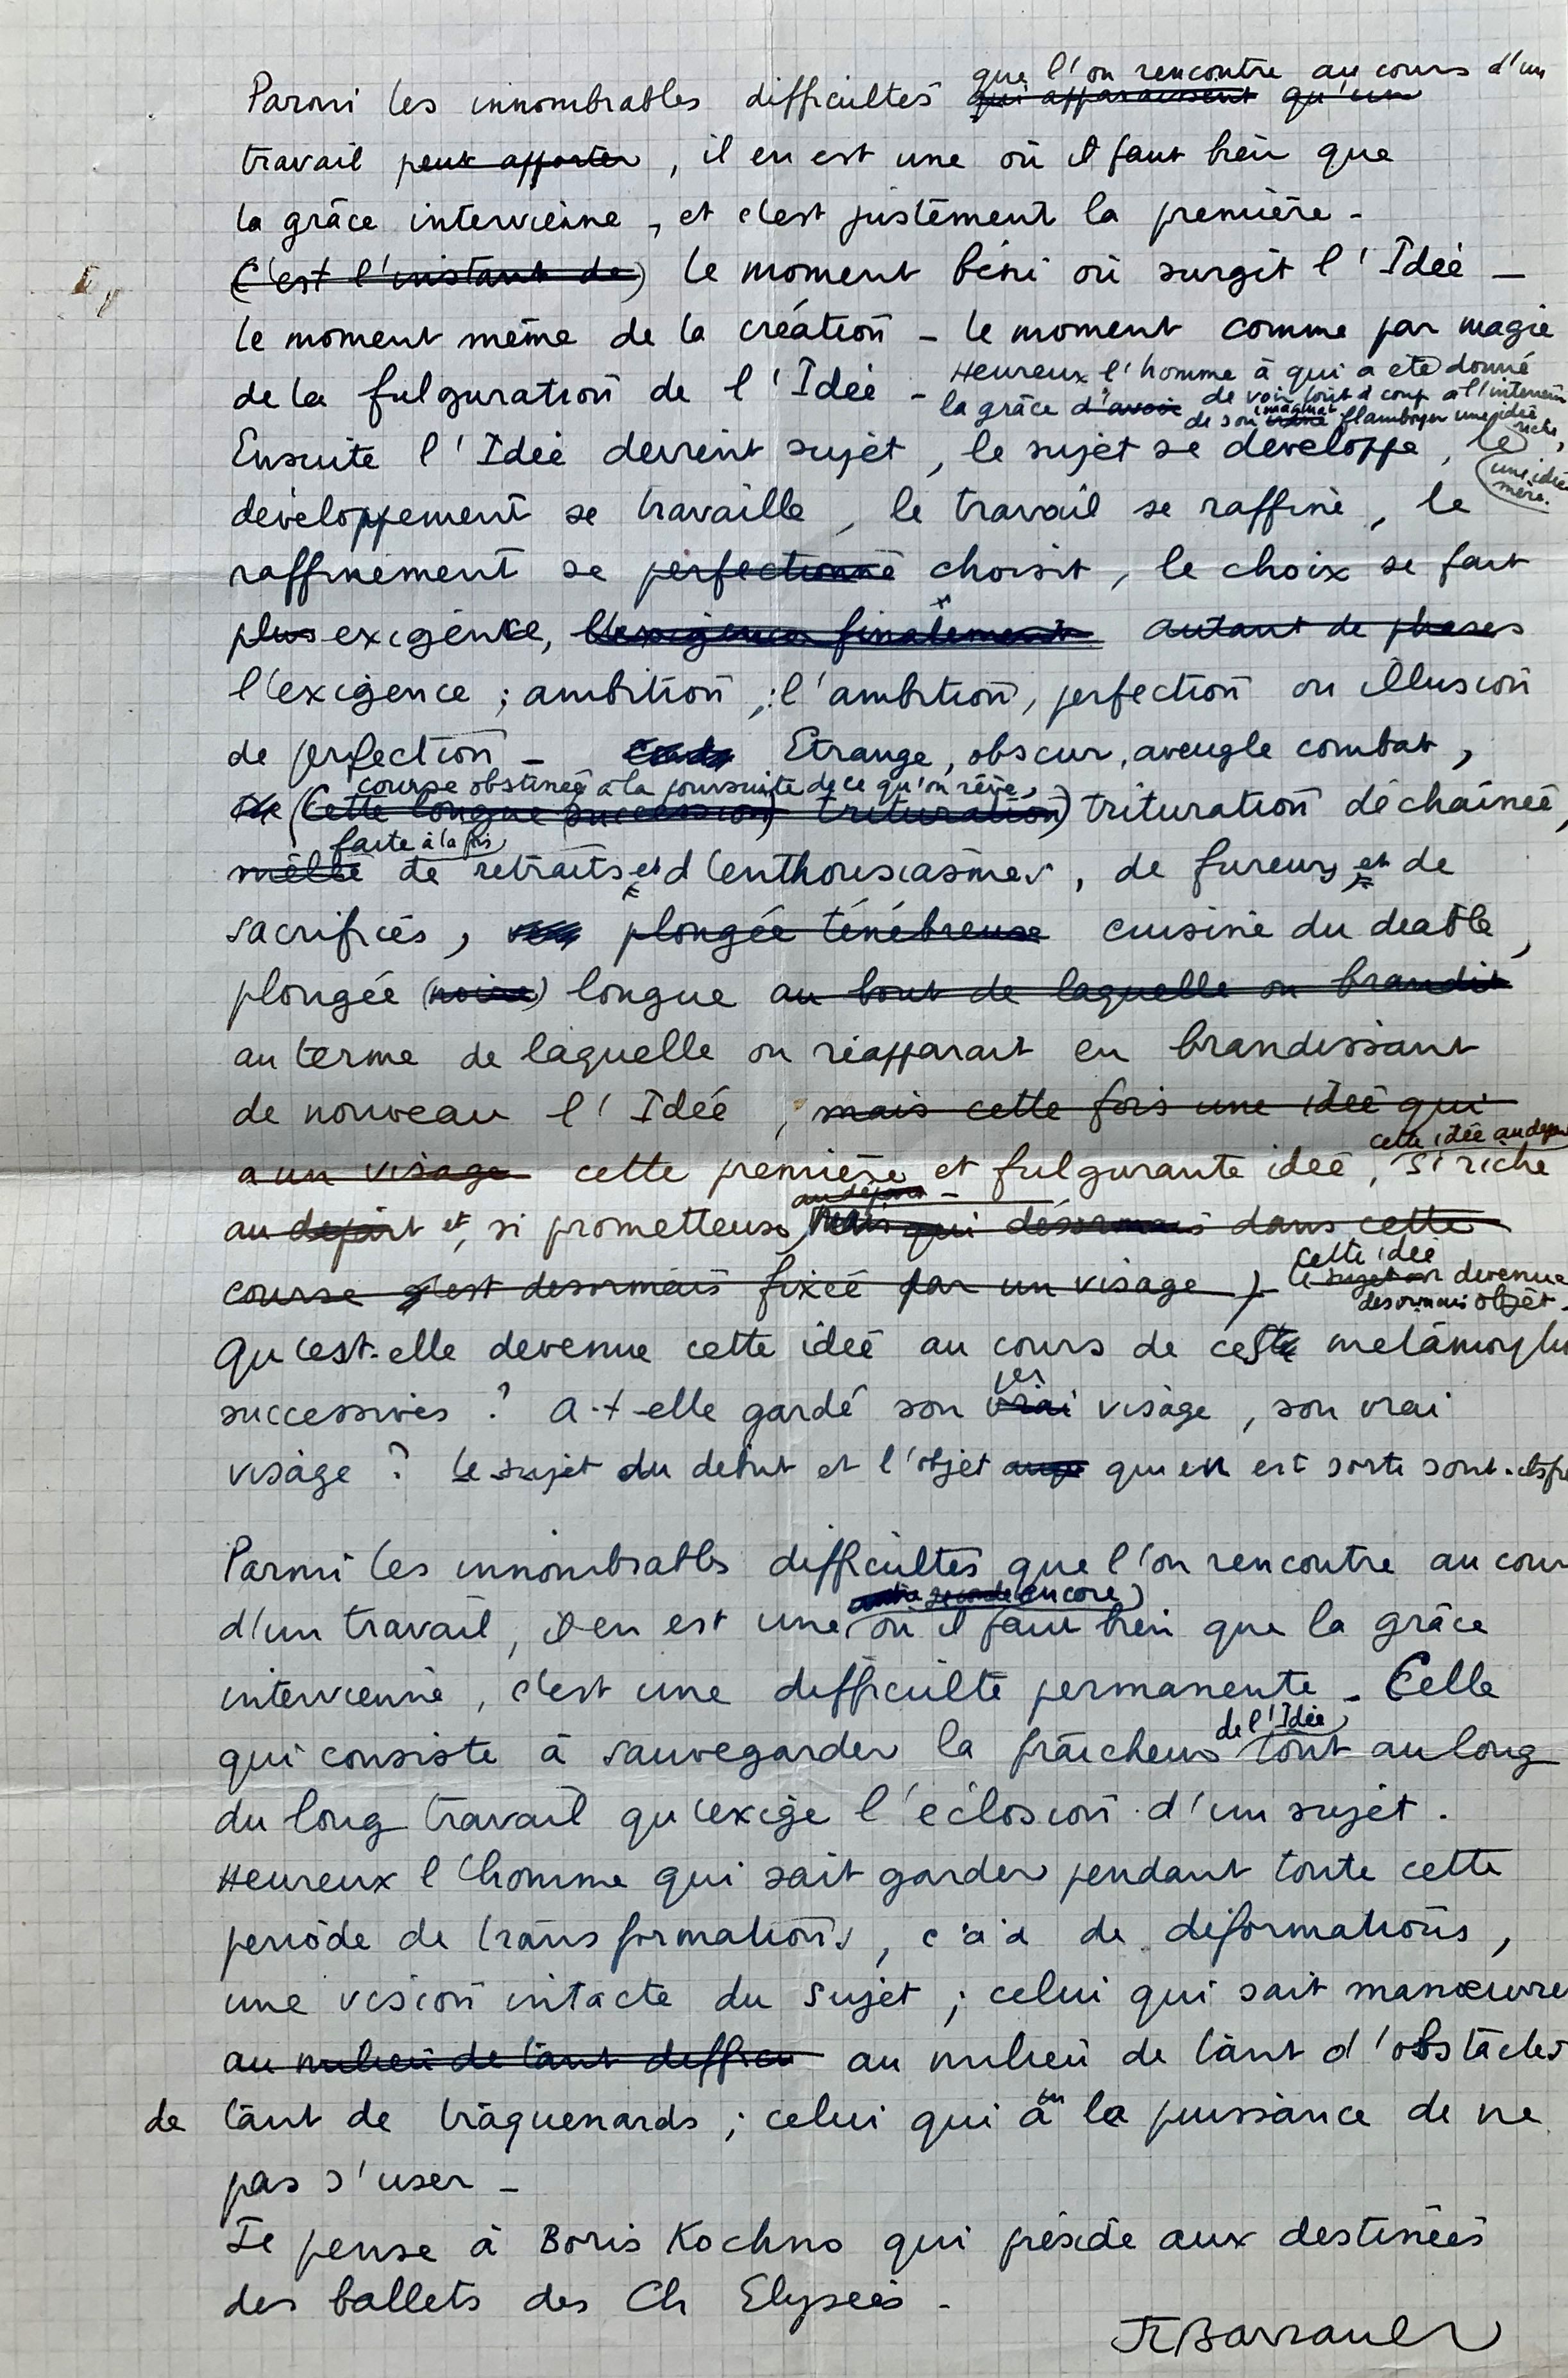 que l'on rencontre au cours d'un
Parmi les innombrables difficultés qui apparaissent qu'un
travail peut apporter, il en est une où il faut bien que
la grâce intervienne, et c'est justement la première -
(C'est l'instant de) le moment béni où surgit l'Idée -
le moment même de la création - le moment comme par magie
de la fulguration de l'Idée - Heureux l'homme à qui a été donné
la grâce d'avoir de voir tout à coup à l'intérieur
de son imaginat flamboyer une idée riche,
une idée
mère.
Ensuite l'Idée devient sujet, le sujet se développe, le
développement se travaille, le travail se raffine, le
raffinement se perfectionne choisit, le choix se fait
plus exigence, l'exigence finalement autant de phases
l'exigence ; ambition ; l'ambition, perfection ou illusion
de perfection - Etrange, obscur, aveugle combat,
course obstinée à la poursuite de ce qu'on rêve,
(Cette longue succession) trituration) trituration déchaînée,
faite à la fois
mêlée de retraits et d'enthousiasmes, de fureurs et de
sacrifices, plongée ténébreuse cuisine du diable,
plongée (noire) longue au bout de laquelle on brandit
au terme de laquelle on réapparait en brandissant
de nouveau l'Idée, mais cette fois une idée qui
cette idée au départ
a un visage cette première et fulgurante idée, si riche
au départ -
au départ et, si prometteuse, mais qui désormais dans cette
cette idée
course s'est désormais fixée par un visage) - le sujet devenue
désormais objet -
Qu'est-elle devenue cette idée au cours de ces métamorpho
ses
successives ? a-t-elle gardé son vrai visage, son vrai
visage ? Le sujet du début et l'objet qui en est sorti sont-ils
Parmi les innombrables difficultés que l'on rencontre au cour
seconde encore)
d'un travail, il en est une où il faut bien que la grâce
intervienne, c'est une difficulté permanente - Celle
de l'Idée,
qui consiste à sauvegarder la fraîcheur tout au long
du long travail qu'exige l'éclosion d'un sujet.
Heureux l'homme qui sait garder pendant toute cette
période de transformations, c'à'd de déformations,
une vision intacte du sujet ; celui qui sait manœuvre
au milieu de tant difficu au milieu de tant d'obstacles
de tant de traquenards ; celui qui a la puissance de ne
pas s'user -
Je pense à Boris Kochno qui préside aux destinées
des ballets des Ch Elysées -
JLBarrault